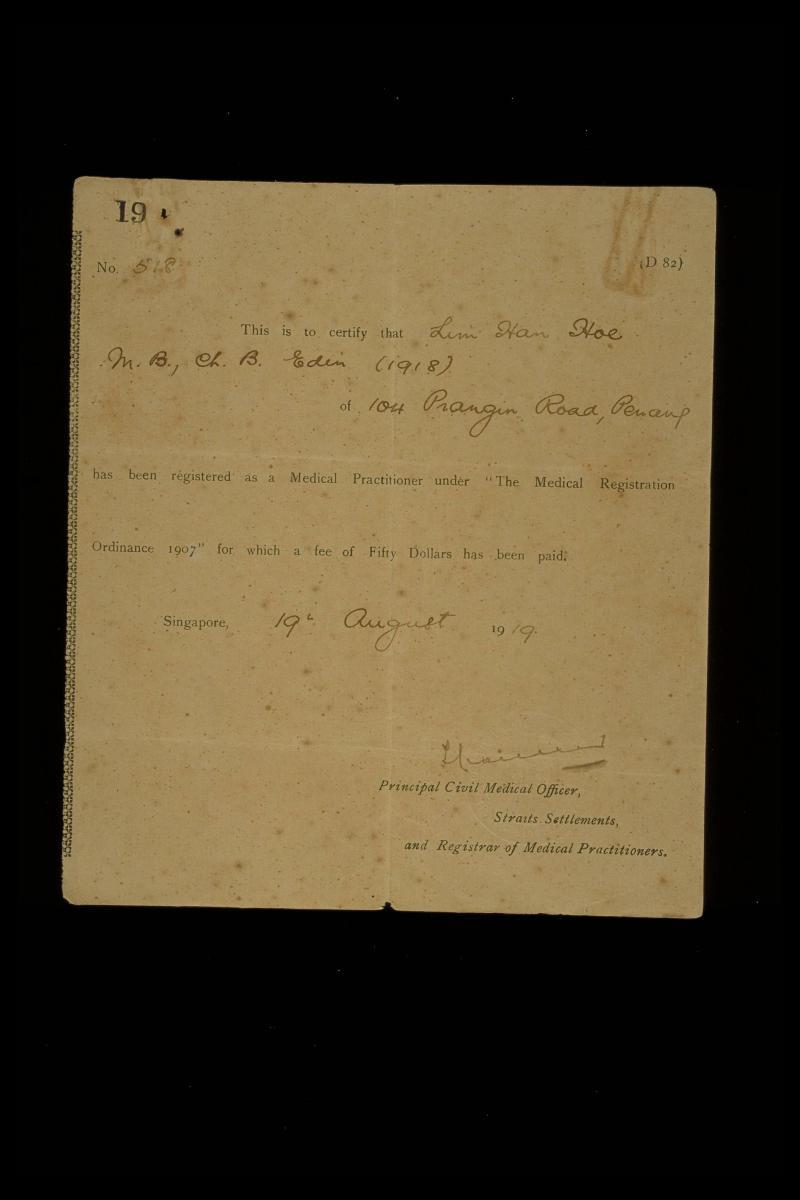 19
No. 518
(D 82)
This is to certify that Lim Han Hoe
M. B., Ch. B. Edin (1918)
of 104 Prangin Road, Penang
has been registered as a Medical Practitioner under "The Medical Registration
Ordinance 1907" for which a fee of Fifty Dollars has been paid.
Singapore, 19th August 1919.
Principal Civil Medical Officer,
Straits Settlements,
and Registrar of Medical Practitioners.